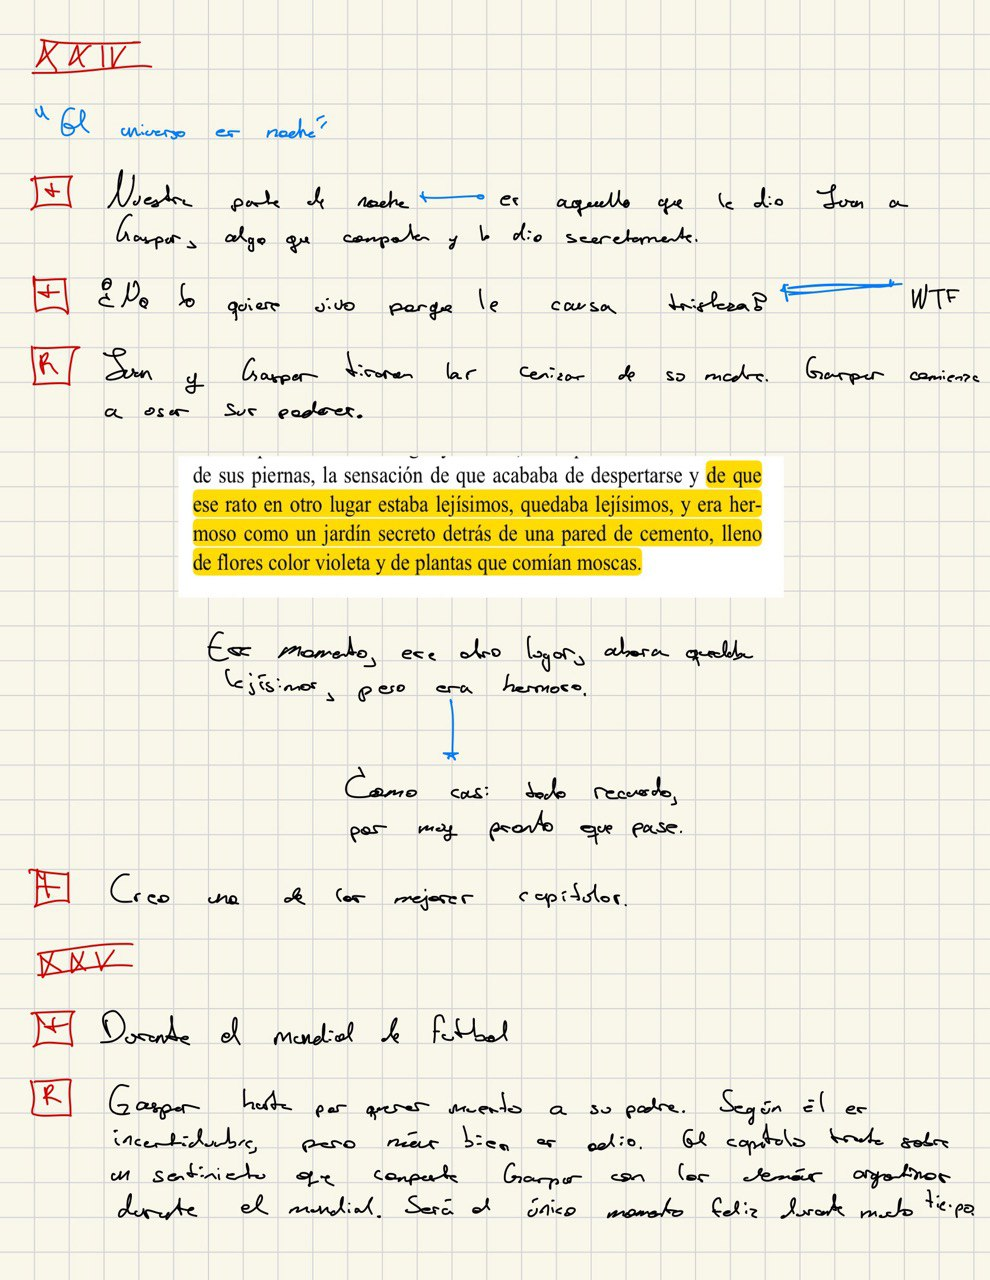 XXIV
"El universo es noche"
+ Nuestra parte de noche es aquello que le dio Juan a
Gaspar, algo que comparten y lo dio secretamente.
+ ¿No lo quiere vivo porque le causa tristeza? WTF
R Juan y Gaspar tiraron las cenizas de su madre. Gaspar comienza
a usar sus poderes.
de sus piernas, la sensación de que acababa de despertarse y de que
ese rato en otro lugar estaba lejísimos, quedaba lejísimos, y era her-
moso como un jardín secreto detrás de una pared de cemento, lleno
de flores color violeta y de plantas que comían moscas.
Ese momento, ese otro lugar, ahora quedaba
lejísimos, pero era hermoso.
Como casi todo recuerdo,
por muy pronto que pase.
+ Creo uno de los mejores capítulos.
XXV
+ Durante el mundial de futbol
R Gaspar harto por querer muerto a su padre. Según él es
incertidumbre, pero más bien es odio. El capítulo trata sobre
un sentimiento que comparte Gaspar con los demás argentinos
durante el mundial. Será el único momento feliz durante mucho tiempo.